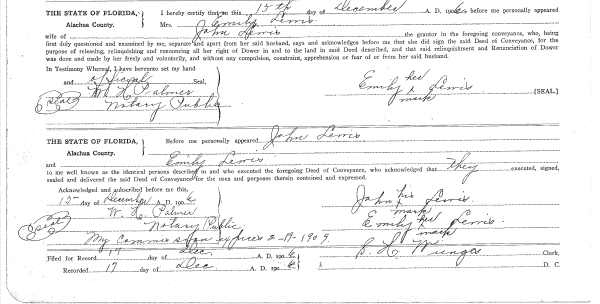 THE STATE OF FLORIDA, I hereby certify that on this 15th day of December A. D. 1906, before me personally appeared
Alachua County. Mrs. Emily Lewis
wife of John Lewis the grantor in the foregoing conveyance, who, being
first duly questioned and examined by me, separate and apart from her said husband, says and acknowledges before me that she did sign the said Deed of Conveyance, for the
purpose of releasing, relinquishing and renouncing all her right of Dower in and to the land in said Deed described, and that said relinquishment and Renunciation of Dower
was done and made by her freely and voluntarily, and without any compulsion, constraint, apprehension or fear of or from her said husband.
In Testimony Whereof, I have hereunto set my hand
and official Seal,
Emily her Lewis [SEAL]
x
mark
(Seal) W. H. Palmer
Notary Public
THE STATE OF FLORIDA, Before me personally appeared John Lewis
Alachua County.
and Emily Lewis
to me well known as the identical persons described in and who executed the foregoing Deed of Conveyance, who acknowledged that they executed, signed,
sealed and delivered the said Deed of Conveyance for the uses and purposes herein contained and expressed.
Acknowledged and subscribed before me this,
15 day of December A. D. 1906
John his Lewis.
mark
(Seal) W. H. Palmer
Notary Public
Emily her Lewis.
mark
My Commission expires 2-19-1909.
Filed for Record 17 day of Dec. A. D. 1906 Clerk,
Recorded 17 day of Dec. A. D. 1906 D. C.